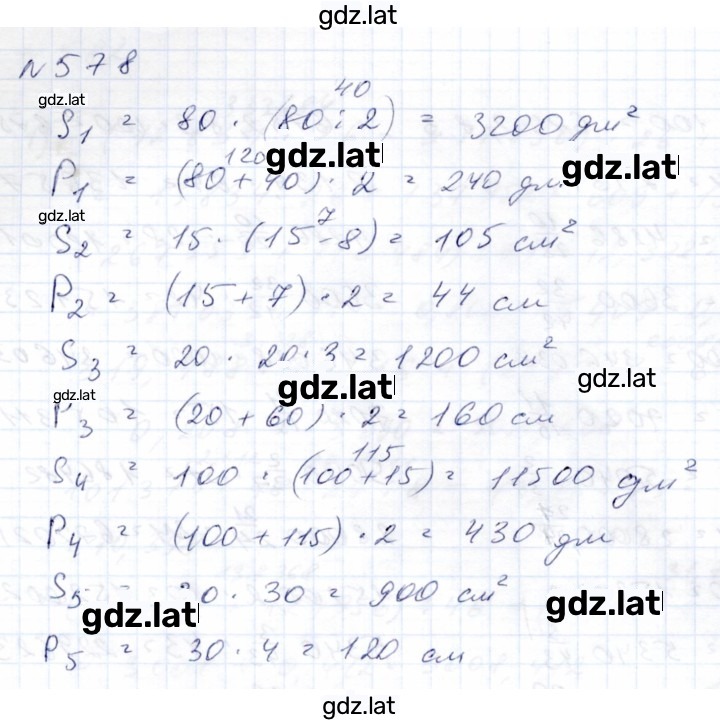 gdz.lat
N578
gdz.lat
40
S₁ = 80 · (80 : 2) = 3200 дм²
gdz.lat
gdz.lat
120
P₁ = (80 + 40) · 2 = 240 дм
gdz.lat
7
S₂ = 15 · (15 - 8) = 105 см²
P₂ = (15 + 7) · 2 = 44 см
S₃ = 20 · 20 · 3 = 1200 см²
gdz.lat
gdz.lat
gdz.lat
P₃ = (20 + 60) · 2 = 160 см
115
S₄ = 100 · (100 + 15) = 11500 дм²
P₄ = (100 + 115) · 2 = 430 дм
S₅ = 30 · 30 = 900 см²
gdz.lat
gdz.lat
P₅ = 30 · 4 = 120 см
gdz.lat